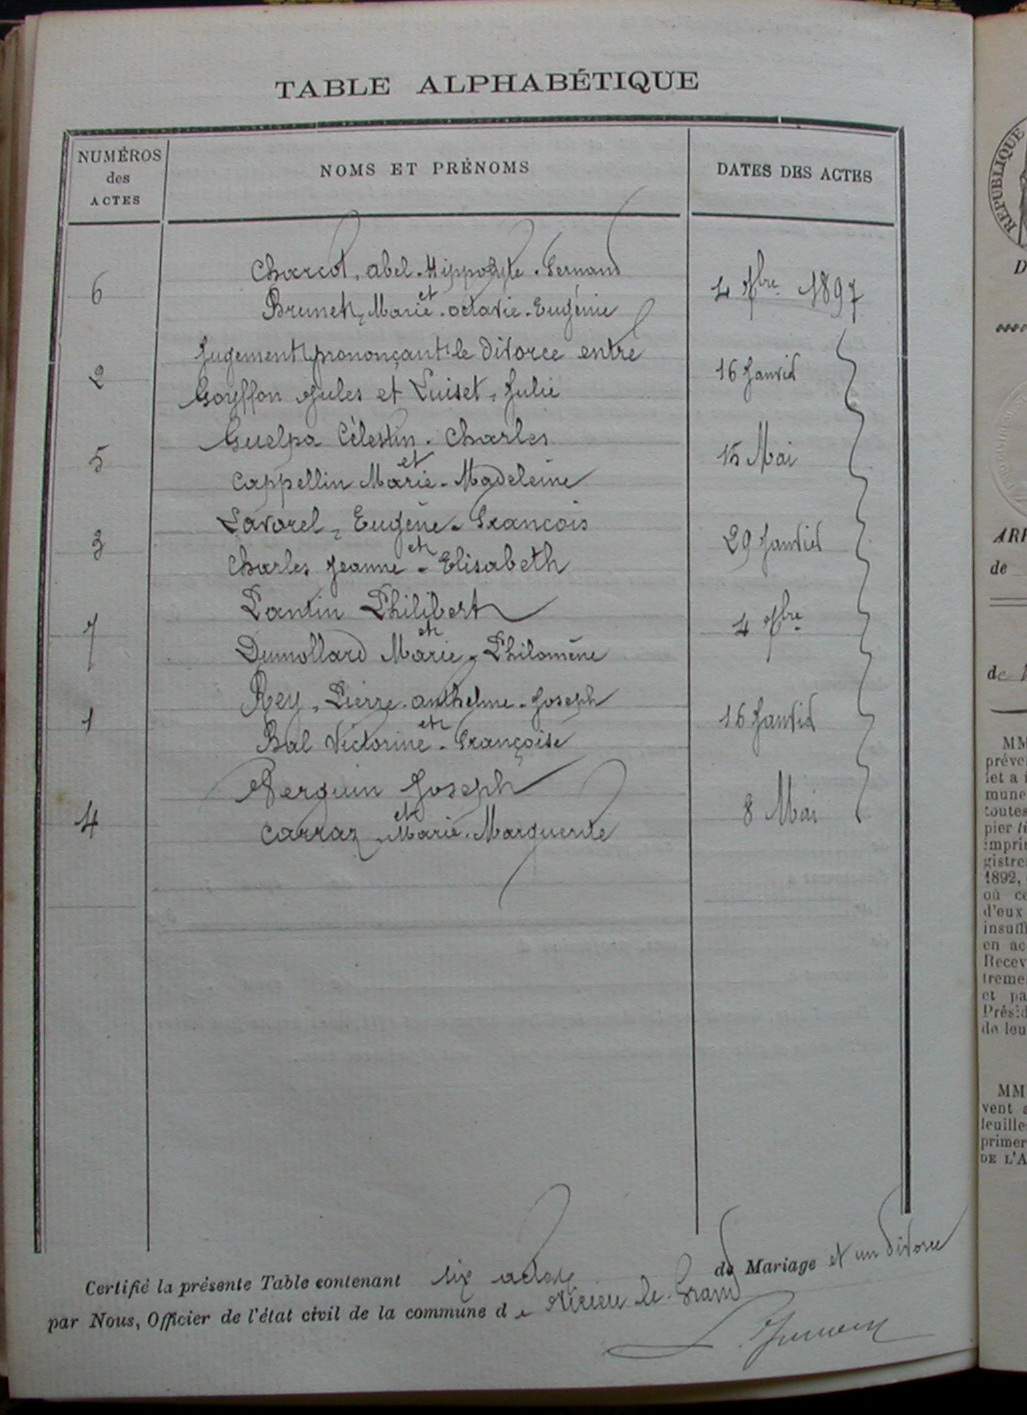 TABLE ALPHABÉTIQUE
NUMÉROS des ACTES
NOMS ET PRÉNOMS
DATES DES ACTES
6
Charcot, Abel-Hippolyte-Fernand
et
Brunet, Marie-Octavie-Eugénie
4 Xbre 1897
2
Jugement prononçant le divorce entre
Goyffon Jules et Luiset, Julie
16 Janvier
5
Guelpa Célestin-Charles
et
Cappellin Marie-Madeleine
15 Mai
3
Lavorel, Eugène-François
et
Charles Jeanne-Elisabeth
29 Janvier
7
Pantin Philibert
et
Dumollard Marie-Philomène
4 Xbre
1
Rey, Pierre-Anthelme-Joseph
et
Bal Victorine-Françoise
16 Janvier
4
Verguin Joseph
et
Carraz Marie-Marguerite
8 Mai
Certifié la présente Table contenant six actes de Mariage et un divorce
par Nous, Officier de l'état civil de la commune de Virieu le Grand
RÉPUBLIQUE
D
ARR
de
de
MM
préve
let a
mune
toutes
pier
imprim
gistre
1892,
où ce
d'eux
insuffi
en ac
Recev
treme
et pa
Présid
de leu
MM
vent
feuille
primer
DE L'A